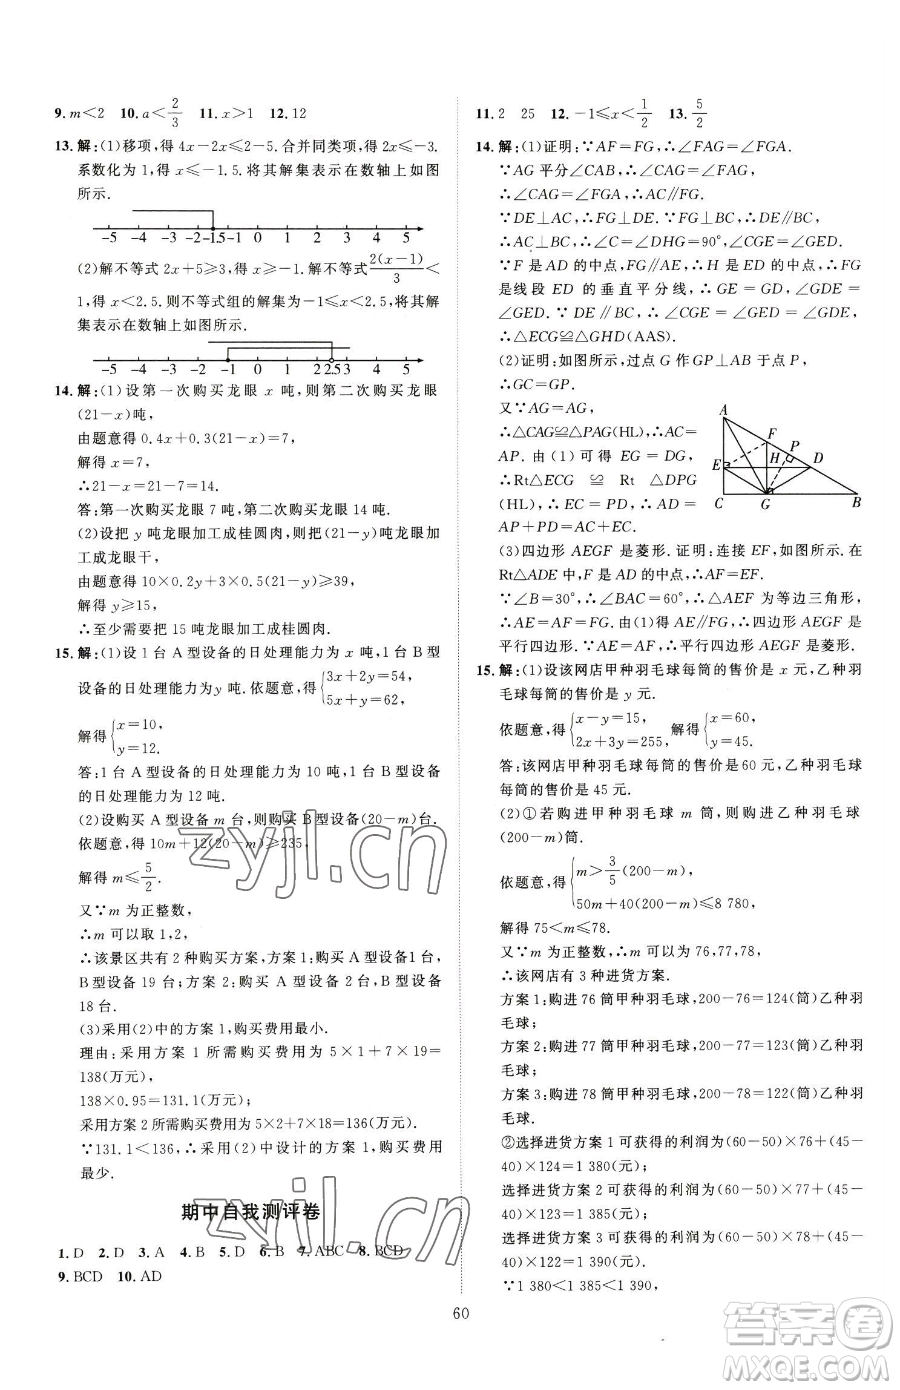 9. m<2 10. a<2/3 11. x>1 12. 12
13. 解:(1)移项,得 4x-2x≤2-5. 合并同类项,得 2x≤-3.
系数化为 1,得 x≤-1.5. 将其解集表示在数轴上如图
所示.
-5 -4 -3 -2 -1.5 -1 0 1 2 3 4 5
(2)解不等式 2x+5≥3,得 x≥-1. 解不等式 2(x-1)/3 <
1,得 x<2.5. 则不等式组的解集为-1≤x<2.5,将其解
集表示在数轴上如图所示.
-5 -4 -3 -2 -1 0 1 2 2.5 3 4 5
14. 解:(1)设第一次购买龙眼 x 吨,则第二次购买龙眼
(21-x)吨,
由题意得 0.4x+0.3(21-x)=7,
解得 x=7,
∴21-x=21-7=14.
答:第一次购买龙眼 7 吨,第二次购买龙眼 14 吨.
(2)设把 y 吨龙眼加工成桂圆肉,则把(21-y)吨龙眼加
工成龙眼干,
由题意得 10×0.2y+3×0.5(21-y)≥39,
解得 y≥15,
∴至少需要把 15 吨龙眼加工成桂圆肉.
15. 解:(1)设 1 台 A 型设备的日处理能力为 x 吨,1 台 B 型
设备的日处理能力为 y 吨. 依题意,得 { 3x+2y=54, 5x+y=62,
解得 { x=10, y=12.
答:1 台 A 型设备的日处理能力为 10 吨,1 台 B 型设备
的日处理能力为 12 吨.
(2)设购买 A 型设备 m 台,则购买 B 型设备(20-m)台.
依题意,得 10m+12(20-m)≥235,
解得 m≤5/2.
又∵m 为正整数,
∴m 可以取 1,2,
∴该景区共有 2 种购买方案,方案 1:购买 A 型设备 1 台,
B 型设备 19 台;方案 2:购买 A 型设备 2 台,B 型设备
18 台.
(3)采用(2)中的方案 1 购买费用最小.
理由:采用方案 1 所需购买费用为 5×1+7×19=
138(万元),
138×0.95=131.1(万元),
采用方案 2 所需购买费用为 5×2+7×18=136(万元).
∵131.1<136,∴采用(2)中设计的方案 1 购买费用
最少.
期中自我测评卷
1. D 2. D 3. A 4. B 5. D 6. B 7. ABC 8. BCD
9. BCD 10. AD
11. 2 25 12. -1≤x<1/2 13. 5/2
14. 解:(1)证明:∵AF=FG,∴∠FAG=∠FGA.
∵AG 平分∠CAB,∴∠CAG=∠FAG,
∴∠CAG=∠FGA,∴AC∥FG.
∵DE⊥AC,∴FG⊥DE. ∵FG⊥BC,∴DE∥BC,
∴AC⊥BC,∴∠C=∠DHG=90°,∠CGE=∠GED.
∵F 是 AD 的中点,FG∥AE,∴H 是 ED 的中点,∴FG
是线段 ED 的垂直平分线,∴GE=GD,∠GDE=
∠GED. ∴∠CGE=∠GDE,
∴△ECG≌△GHD(AAS).
(2)证明:如图所示,过点 G 作GP⊥AB 于点 P,
∴GC=GP.
又∵AG=AG,
∴△CAG≌△PAG(HL),∴AC=
AP. 由(1)可得 EG=DG,∴
Rt△ECG ≌ Rt△DPG
(HL),∴EC=PD,∴AD=
AP+PD=AC+EC.
A F P E H D C G B
(3)四边形 AEGF 是菱形. 证明:连接 EF,如图所示. 在
Rt△ADE 中,F 是 AD 的中点,∴AF=EF.
∵∠B=30°,∴∠BAC=60°,∴△AEF 为等边三角形,
∴AE=AF=FG. 由(1)得 AE∥FG,∴四边形 AEGF 是
平行四边形. ∵AE=AF,∴平行四边形 AEGF 是菱形.
15. 解:(1)设该网店甲种羽毛球每筒的售价是 x 元,乙种羽
毛球每筒的售价是 y 元.
依题意,得 { x-y=15, 2x+3y=255, 解得 { x=60, y=45.
答:该网店甲种羽毛球每筒的售价是 60 元,乙种羽毛球
每筒的售价是 45 元.
(2)①若购进甲种羽毛球 m 筒,则购进乙种羽毛球
(200-m)筒.
依题意,得 { m>3/5(200-m), 50m+40(200-m)≤8 780,
解得 75<m≤78.
又∵m 为正整数,∴m 可以为 76,77,78,
∴该网店有 3 种进货方案.
方案 1:购进 76 筒甲种羽毛球,200-76=124(筒)乙种羽
毛球;
方案 2:购进 77 筒甲种羽毛球,200-77=123(筒)乙种羽
毛球;
方案 3:购进 78 筒甲种羽毛球,200-78=122(筒)乙种羽
毛球.
②选择进货方案 1 可获得的利润为(60-50)×76+(45-
40)×124=1 380(元);
选择进货方案 2 可获得的利润为(60-50)×77+(45-
40)×123=1 385(元);
选择进货方案 3 可获得的利润为(60-50)×78+(45-
40)×122=1 390(元).
∵1 380<1 385<1 390,
60
zyjl.cn
zyjl.cn
答案圈
MXQE.COM